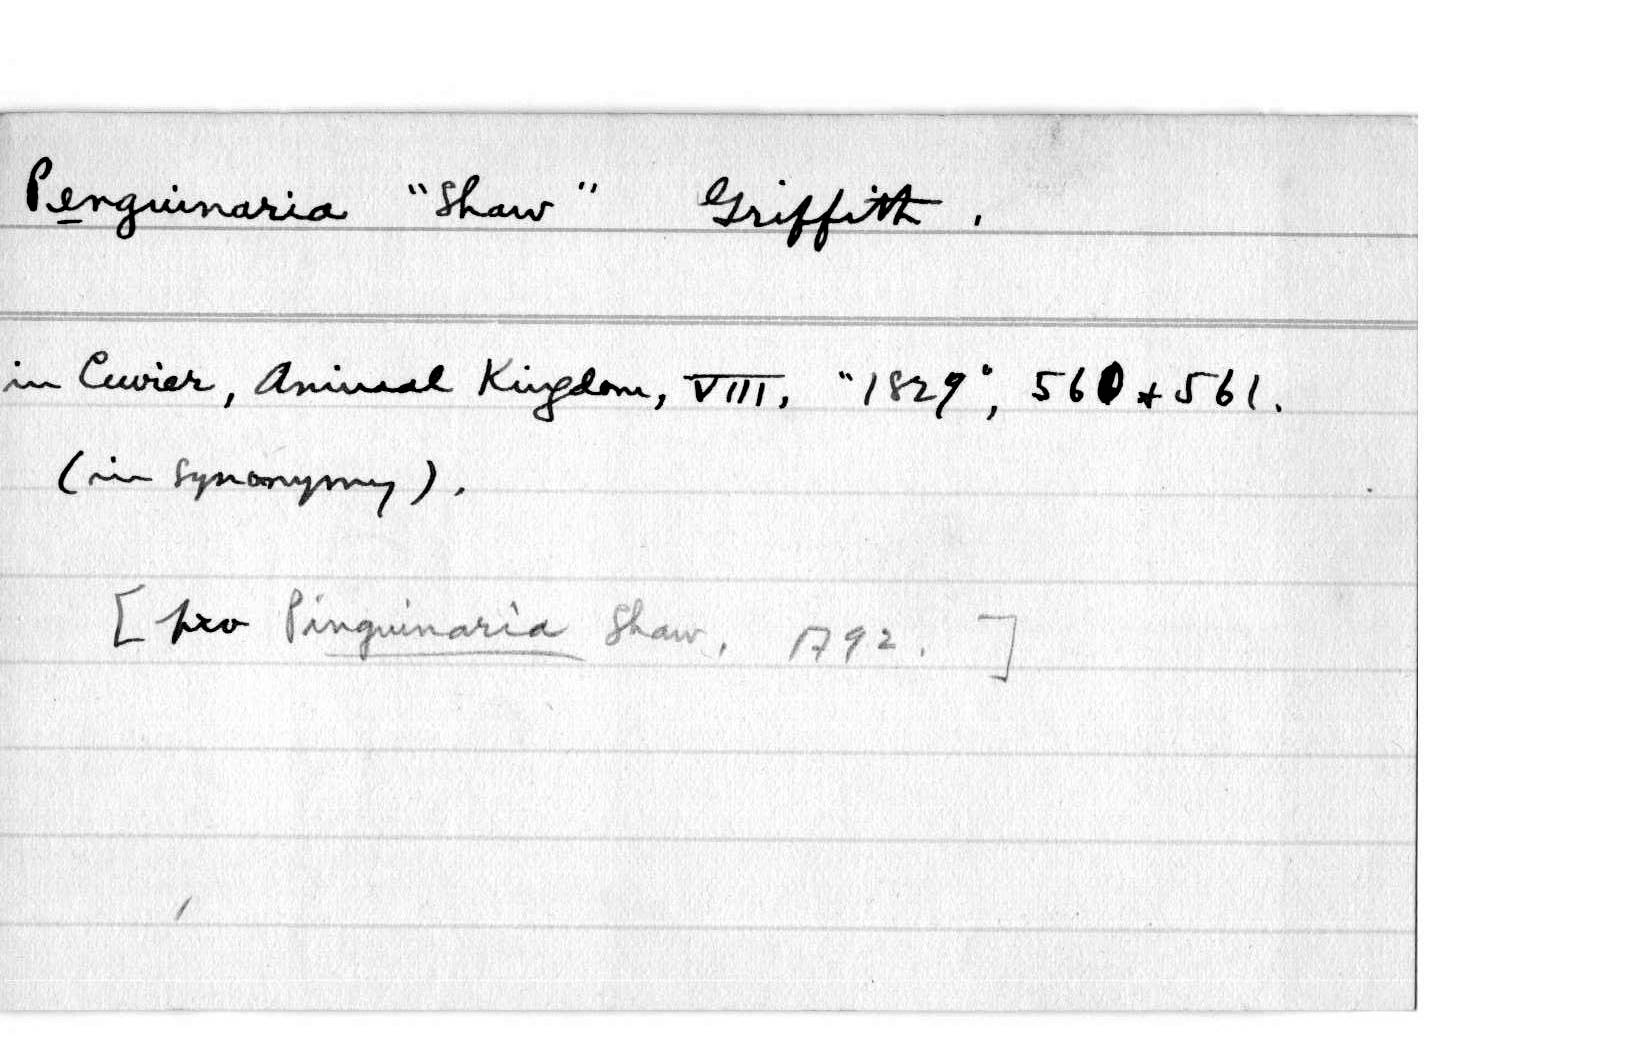 Penguinaria "Shaw" Griffith.
in Cuvier, Animal Kingdom, VIII, "1829", 560 + 561.
(in synonymy).
[pro Pinguinaria Shaw, 1792.]